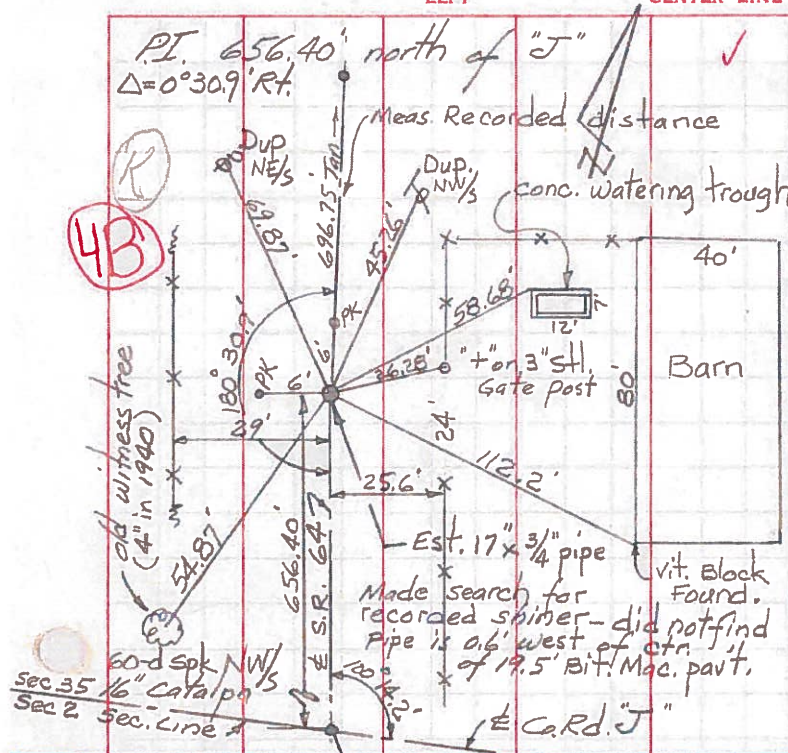 P.I. 656.40' north of "J"
Δ=0°30.9' Rt.
Meas. Recorded distance
N
K
4B
Dup NE/s
Dup. NW/s
conc. watering trough
69.87'
696.75' Tan
45.26'
40'
58.68'
7'
12'
PK
6'
180° 30.9'
PK
6'
36.28'
"+" on 3" Stl.
Gate post
Barn
80'
24'
29'
112.2'
25.6'
old witness tree
(4" in 1940)
54.87'
656.40'
℄ S.R. 647
Est. 17" x 3/4" pipe
Vit. Block
Found.
Made search for
recorded shiner - did not find
Pipe is 0.6' west of ctr.
of 19.5' Bit. Mac. pav't.
60-d spk NW/s
16" Catalpa
Sec 35
Sec 2
Sec. Line
℄ Co. Rd. "J"